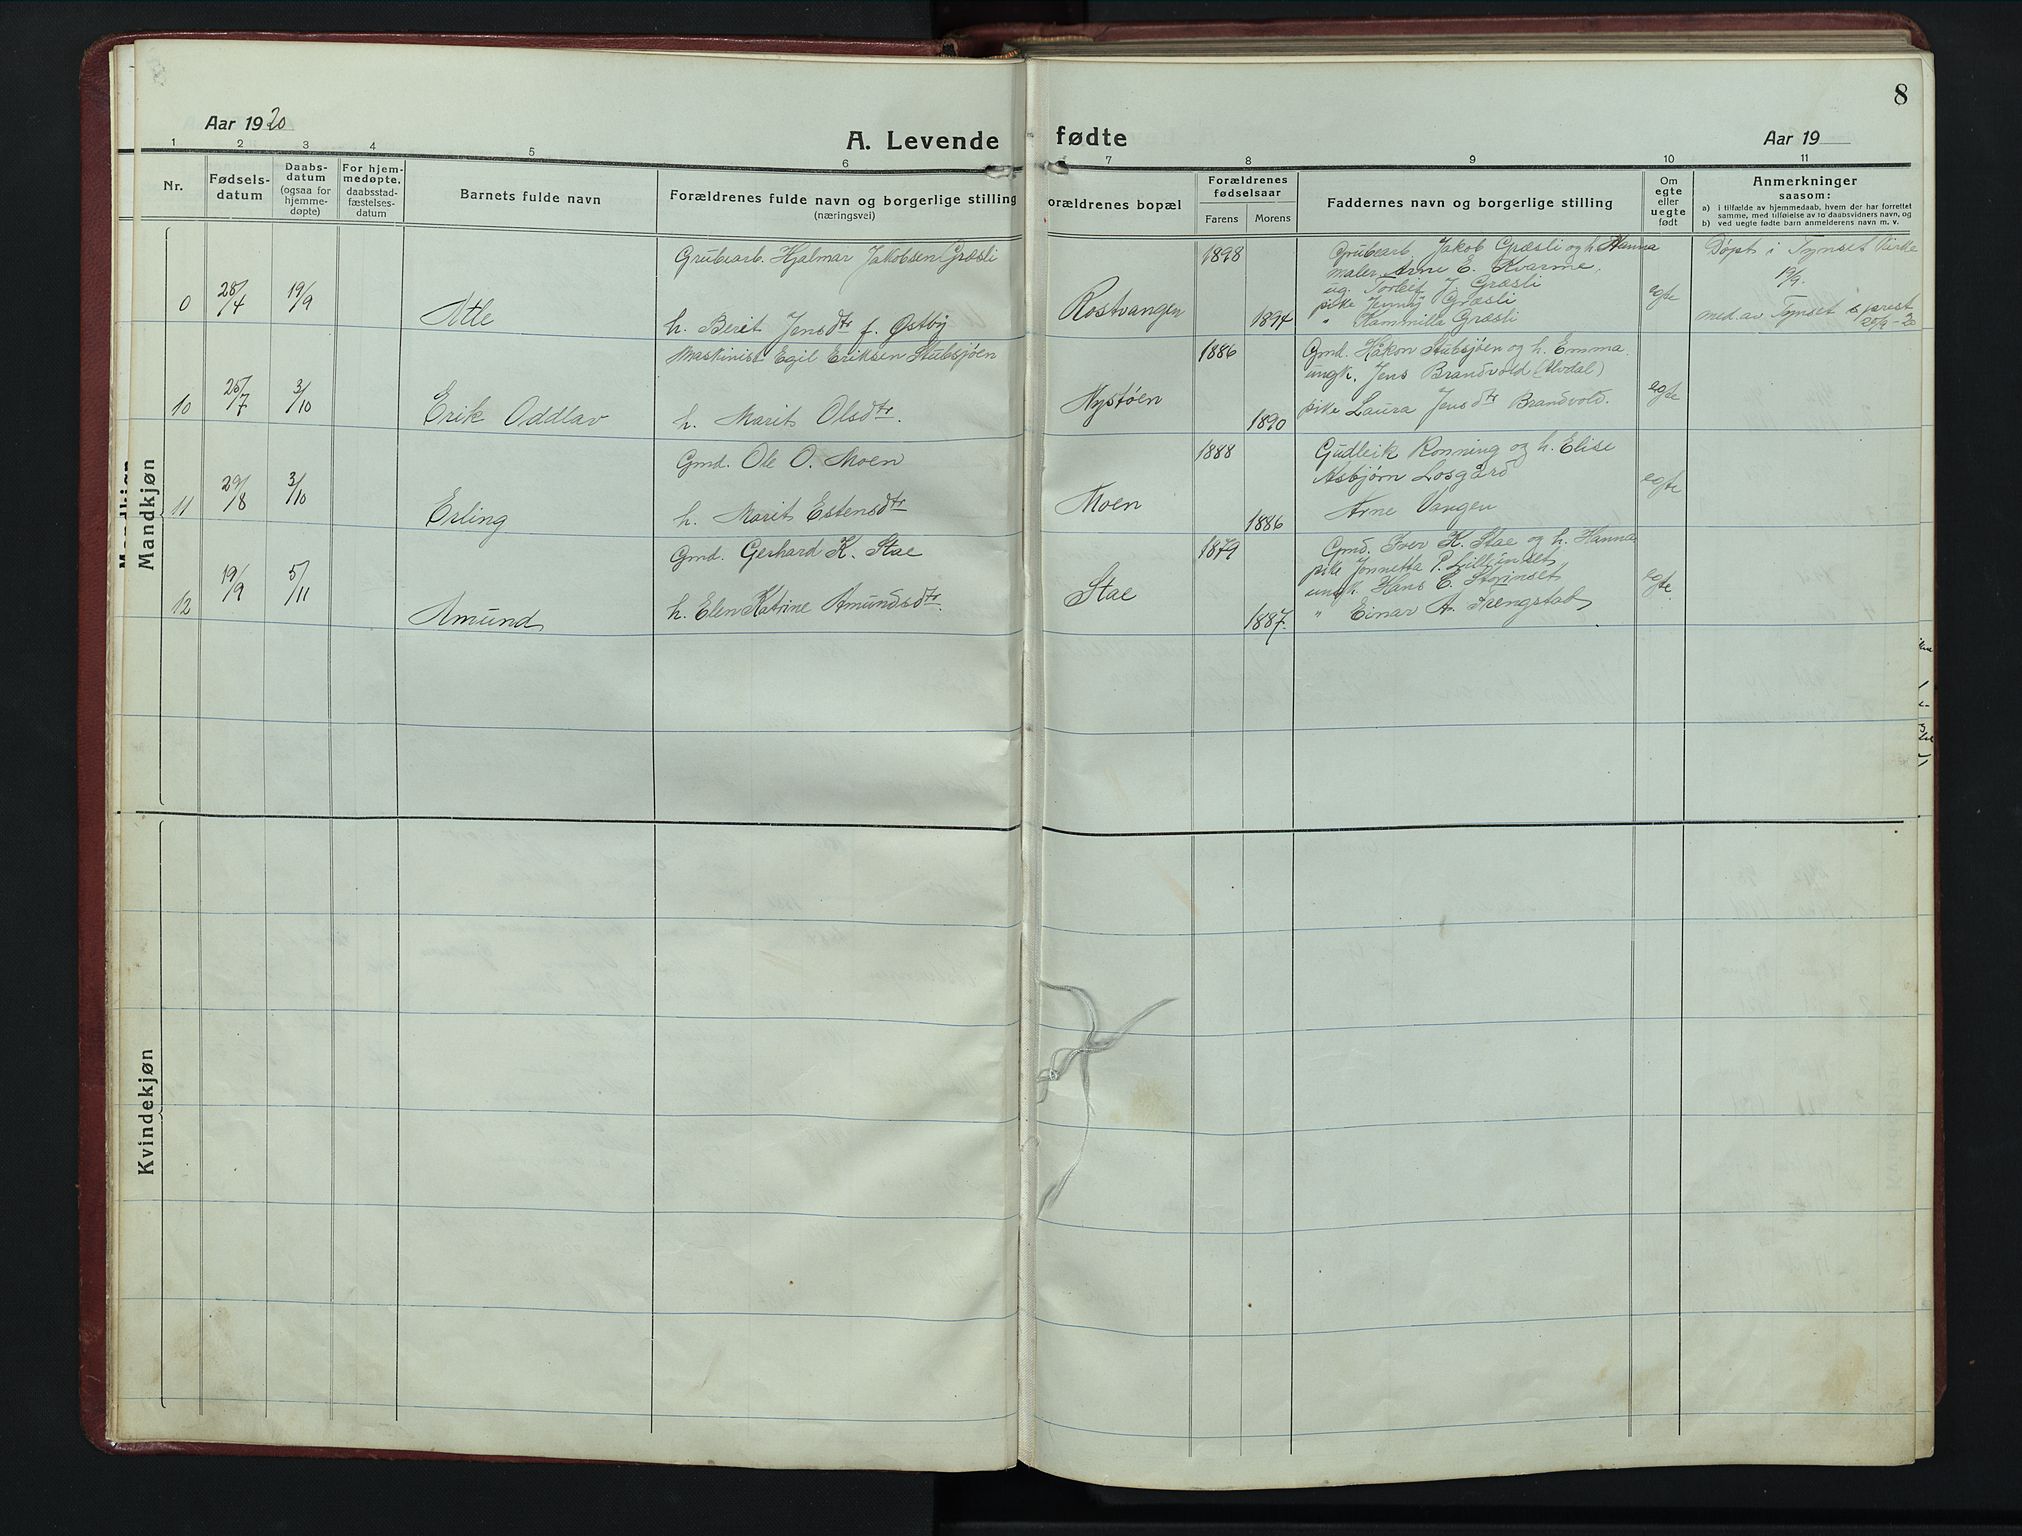 8
Aar 1920
A. Levende fødte
Aar 19
1 2 3 4 5 6 7 8 9 10 11
Nr.
Fødsels-
datum
Daabs-
datum
(ogsaa for
hjemme-
døpte)
For hjem-
medøpte,
daabsstad-
fæstelses-
datum
Barnets fulde navn
Forældrenes fulde navn og borgerlige stilling
(næringsvei)
orældrenes bopæl
Forældrenes
fødselsaar
Farens Morens
Faddernes navn og borgerlige stilling
Om
egte
eller
uegte
født
Anmerkninger
saasom:
a) i tilfælde av hjemmedaab, hvem der har forrettet
samme, med tilføielse av to daabsvidners navn, og
b) ved uegte fødte barn anmelderens navn m. v.
Mandkjøn
Grubearb. Hjalmar Jakobsen Græsli
0 28/4 19/9 Atle
h. Berit Jensdtr f. Østby
Rostvangen
1898
1894
Grubearb. Jakob Græsli og h. Hanna
maler Arne E. Kvarme,
ug. Torleif J. Græsli
pike Jenny Græsli
" Kammilla Græsli
egte
Døpt i Tynset kirke
19/9.
med. av Tynset s. prest
20/9 - 20
Maskinist Egil Eriksen Stubsjøen
10 25/7 3/10 Erik Oddlav
h. Marit Olsdtr.
Nystøen
1886
1890
Gmd. Håkon Stubsjøen og h. Emma.
ungk. Jens Brandvold (Alvdal)
pike Laura Jensdtr Brandvold.
egte
Gmd. Ole O. Moen
11 29/8 3/10 Erling
h. Marit Estensdtr
Moen
1888
1886
Gudleik Rønning og h. Elise
Asbjørn Losgård
Arne Vangen
egte
Gmd. Gerhard K. Stae
12 19/9 5/11 Amund
h. Elen Katrine Amundsdtr.
Stae
1879
1887.
Gmd. Iver K. Stae og h. Hanna
pike Jonnetta P. Lilleindset
ungk. Hans E. Storinset
" Einar A. Trengstad
egte.
Kvindekjøn